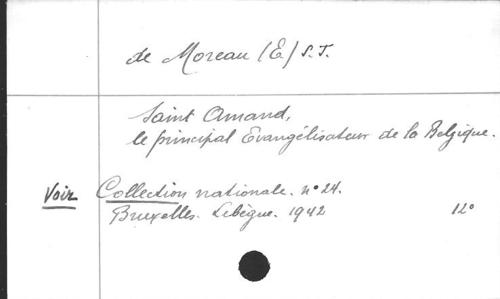 de Moreau (E) S.J.
Saint Amand,
le principal Evangélisateur de la Belgique.
Voir Collection nationale. n° 24.
Bruxelles. Lebègue. 1942 12°